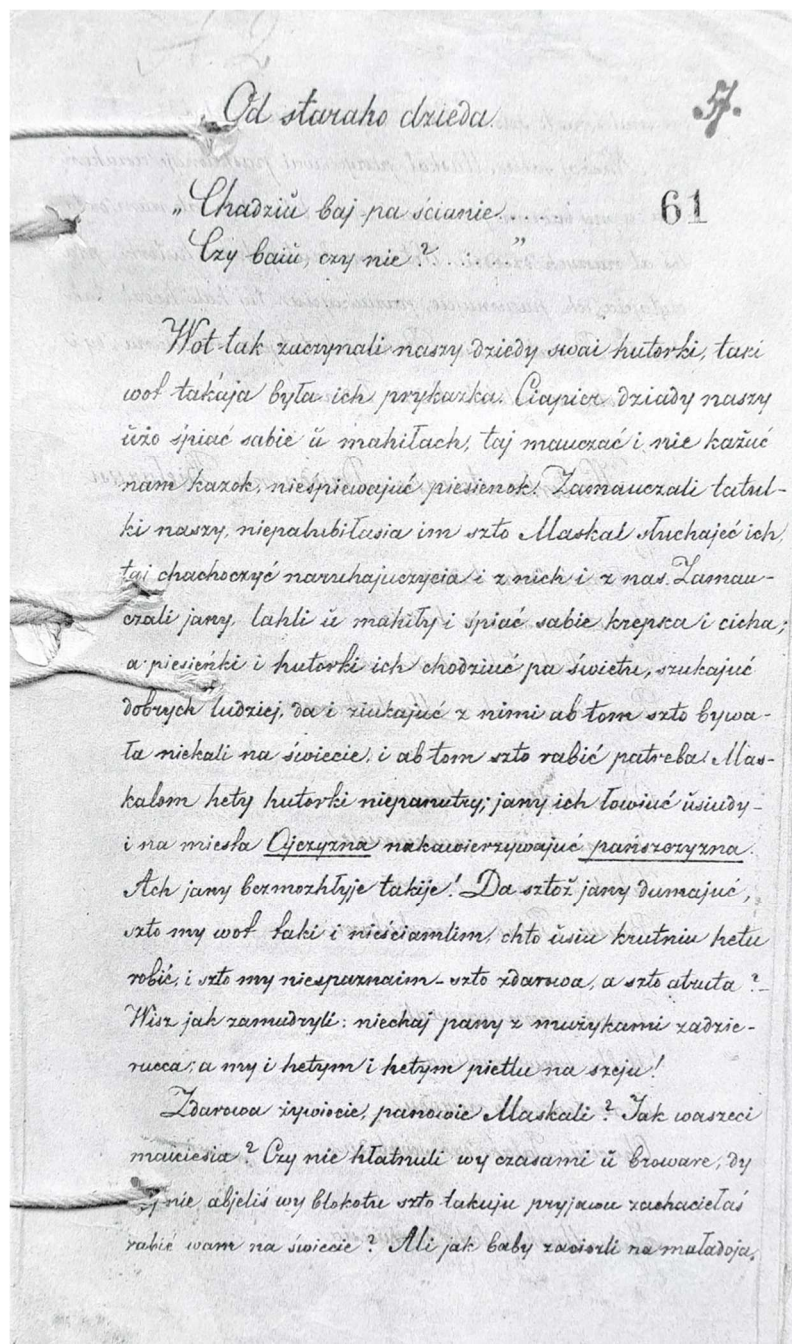 Od staraho dzieda.
57.
„Chadziŭ baj pa ścianie.....
61
Czy baiŭ, czy nie?......”
Wot tak zaczynali naszy dziedy swai hutorki, taki
wot takája była ich prykazka. Ciapier dziady naszy
ŭżo śpiać sabie ŭ mahiłach, taj mauczać i nie każuć
nam kazok, nieśpiewajuć piesienok. Zamauczali tatul-
ki naszy, niepalubiłasia im szto Maskal słuchajeć ich,
taj chachoczyć naruhajuczycia i z nich i z nas. Zamau-
czali jany, lahli ŭ mahiły i śpiać sabie krepka i cicha;
a piesieńki i hutorki ich chodziuć pa świetu, szukajuć
dobrych ludziej, da i ziukajuć z nimi ab tom szto bywa-
ła niekali na świecie, i ab tom szto rabić patreba. Mas-
kalom hety hutorki niepanutry; jany ich łowiuć ŭsiudy-
i na miesła Ojczyzna nakawierzywajuć pańszczyzna.
Ach jany bezmozhłyje takije! Da sztoż jany dumajuć,
szto my wot taki i nieściamlim, chto ŭsiu krutniu hetu
robić, i szto my niespaznaim - szto zdarowa, a szto atruta?-
Wisz jak zamudryli: niechaj pany z mużykami zadzie-
rucca, a my i hetym i hetym pietlu na szeju!
Zdarowa żywiecie, panowie Maskali? Jak waszeci
maiciesia? Czy nie hłatnuli wy czasami ŭ broware, dy
nie abjeliś wy błokotu szto takuju pryjawu zachaciełaś
rabić wam na świecie? Ali jak baby zawiezli na maładoja,